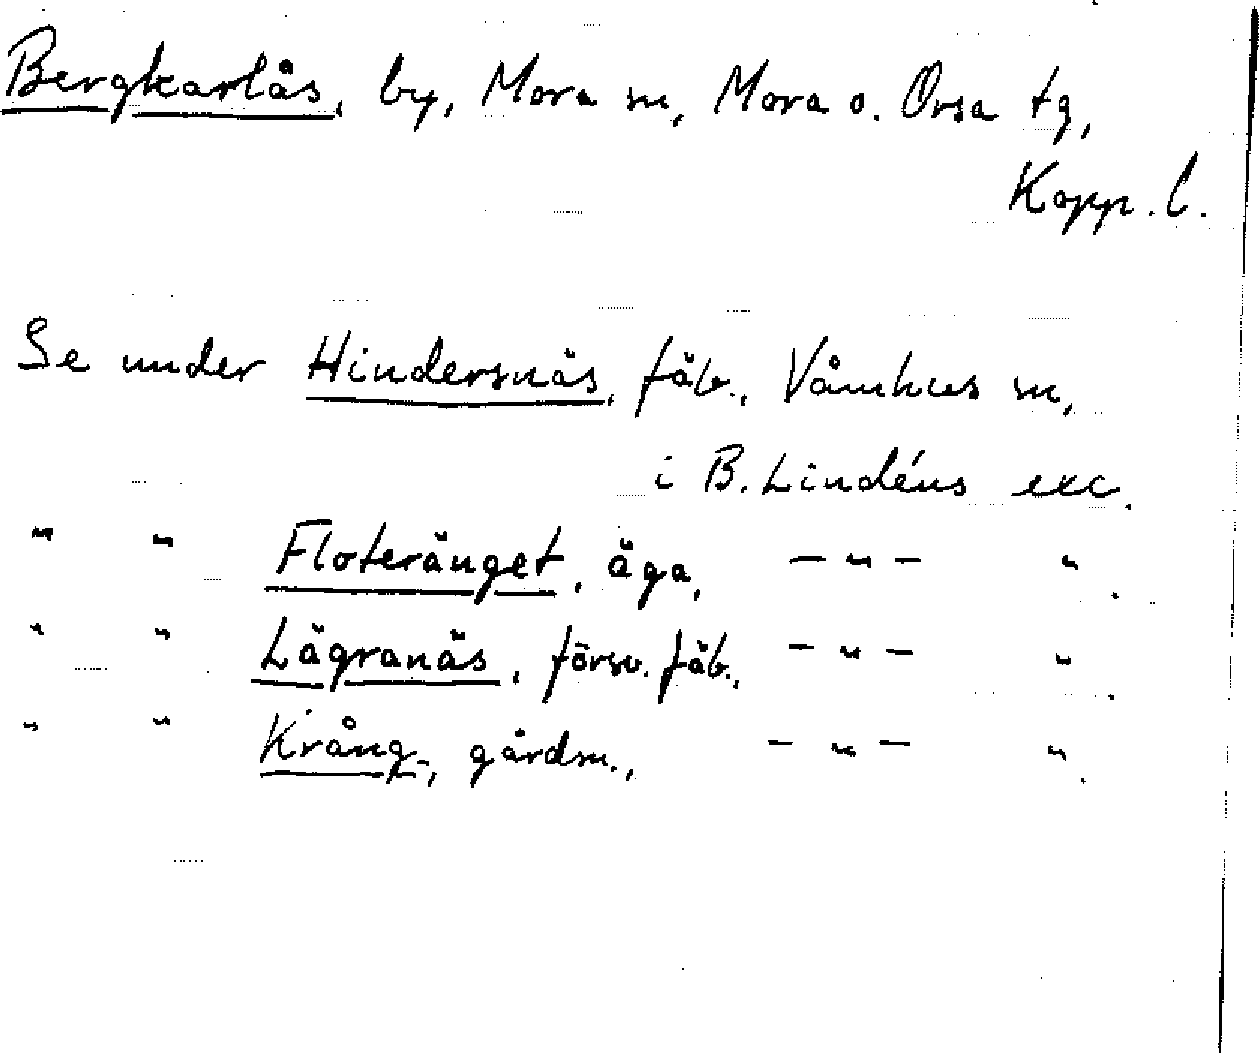 Bergkarlås, by, Mora sn, Mora o. Orsa tg,
Kopp. l.
Se under Hindersnäs, fäb., Våmhus sn,
i B. Lindéns exc.
" " Floteränget, äga, — " — " .
" " Lägranäs, försv. fäb., — " — " .
" " Krång-, gårdsn., — " — " .